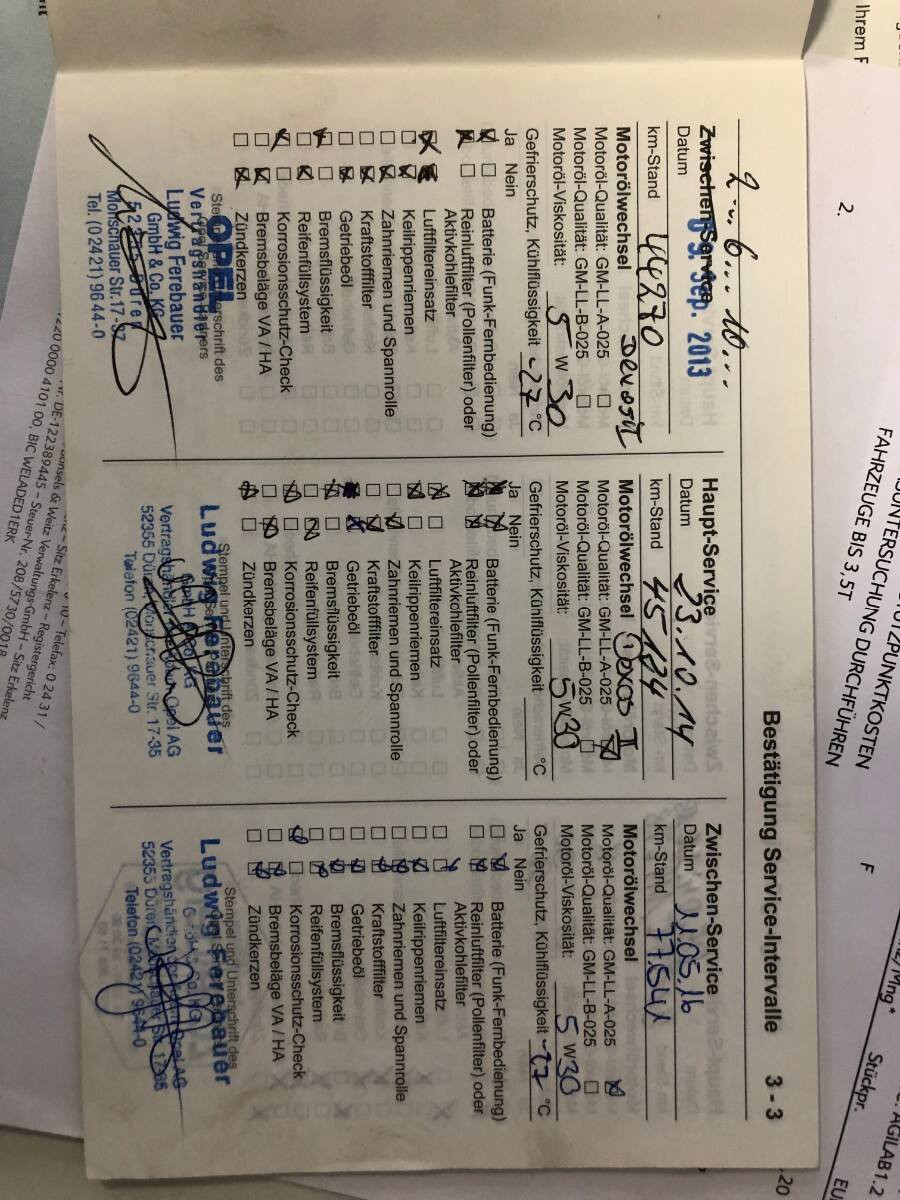 Bestätigung Service-Intervalle 3 - 3
2 ... 6 ... 10 ...
Zwischen-Service
Datum 09. Sep. 2013
km-Stand 44270
Motorölwechsel
Motoröl-Qualität: GM-LL-A-025
Motoröl-Qualität: GM-LL-B-025
Motoröl-Viskosität: 5 W 30
Gefrierschutz, Kühlflüssigkeit -27 °C
Ja Nein
Batterie (Funk-Fernbedienung)
Reinluftfilter (Pollenfilter) oder
Aktivkohlefilter
Luftfiltereinsatz
Keilrippenriemen
Zahnriemen und Spannrolle
Kraftstofffilter
Getriebeöl
Bremsflüssigkeit
Reifenfüllsystem
Korrosionsschutz-Check
Bremsbeläge VA / HA
Zündkerzen
OPEL
Vertragshändler
Ludwig Ferebauer
GmbH & Co. KG
52355 Düren
Monschauer Str. 17-37
Tel. (0 24 21) 96 44-0
Haupt-Service
Datum 23.10.14
km-Stand
Motorölwechsel
Motoröl-Qualität: GM-LL-A-025
Motoröl-Qualität: GM-LL-B-025
Motoröl-Viskosität: 5 W 30
Gefrierschutz, Kühlflüssigkeit °C
Ja Nein
Batterie (Funk-Fernbedienung)
Reinluftfilter (Pollenfilter) oder
Aktivkohlefilter
Luftfiltereinsatz
Keilrippenriemen
Zahnriemen und Spannrolle
Kraftstofffilter
Getriebeöl
Bremsflüssigkeit
Reifenfüllsystem
Korrosionsschutz-Check
Bremsbeläge VA / HA
Zündkerzen
Stempel und Unterschrift des
Ludwig Ferebauer
GmbH & Co. KG
Vertragshändler der Adam Opel AG
52355 Düren, Monschauer Str. 17-35
Telefon (02421) 9644-0
Zwischen-Service
Datum 11.05.16
km-Stand 77541
Motorölwechsel
Motoröl-Qualität: GM-LL-A-025
Motoröl-Qualität: GM-LL-B-025
Motoröl-Viskosität: 5 W 30
Gefrierschutz, Kühlflüssigkeit -27 °C
Ja Nein
Batterie (Funk-Fernbedienung)
Reinluftfilter (Pollenfilter) oder
Aktivkohlefilter
Luftfiltereinsatz
Keilrippenriemen
Zahnriemen und Spannrolle
Kraftstofffilter
Getriebeöl
Bremsflüssigkeit
Reifenfüllsystem
Korrosionsschutz-Check
Bremsbeläge VA / HA
Zündkerzen
Stempel und Unterschrift des
Ludwig Ferebauer
GmbH & Co. KG
Vertragshändler der Adam Opel AG
52355 Düren, Monschauer Str. 17-35
Telefon (02421) 9644-0
Ihrem F
2.
FAHRZEUGE BIS 3,5T
UNTERSUCHUNG DURCHFÜHREN F
Stückpr.
EU
Weitz Verwaltungs-GmbH – Sitz Erkelenz
Sitz Erkelenz – Registergericht
Telefax: 0 24 31 /
DE-122389445 – Steuer-Nr. 208/5730/0018
0000 4101 00, BIC WELADED1ERK